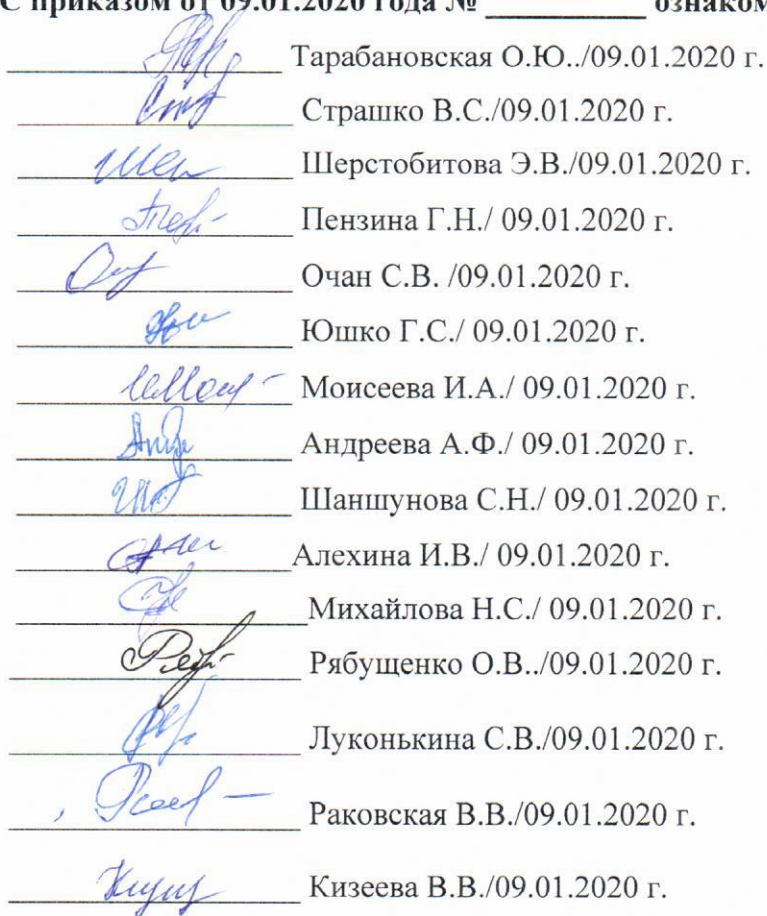 С приказом от 09.01.2020 года № __________ ознаком
Тарабановская О.Ю../09.01.2020 г.
Страшко В.С./09.01.2020 г.
Шерстобитова Э.В./09.01.2020 г.
Пензина Г.Н./ 09.01.2020 г.
Очан С.В. /09.01.2020 г.
Юшко Г.С./ 09.01.2020 г.
Моисеева И.А./ 09.01.2020 г.
Андреева А.Ф./ 09.01.2020 г.
Шаншунова С.Н./ 09.01.2020 г.
Алехина И.В./ 09.01.2020 г.
Михайлова Н.С./ 09.01.2020 г.
Рябущенко О.В../09.01.2020 г.
Луконькина С.В./09.01.2020 г.
Раковская В.В./09.01.2020 г.
Кизеева В.В./09.01.2020 г.